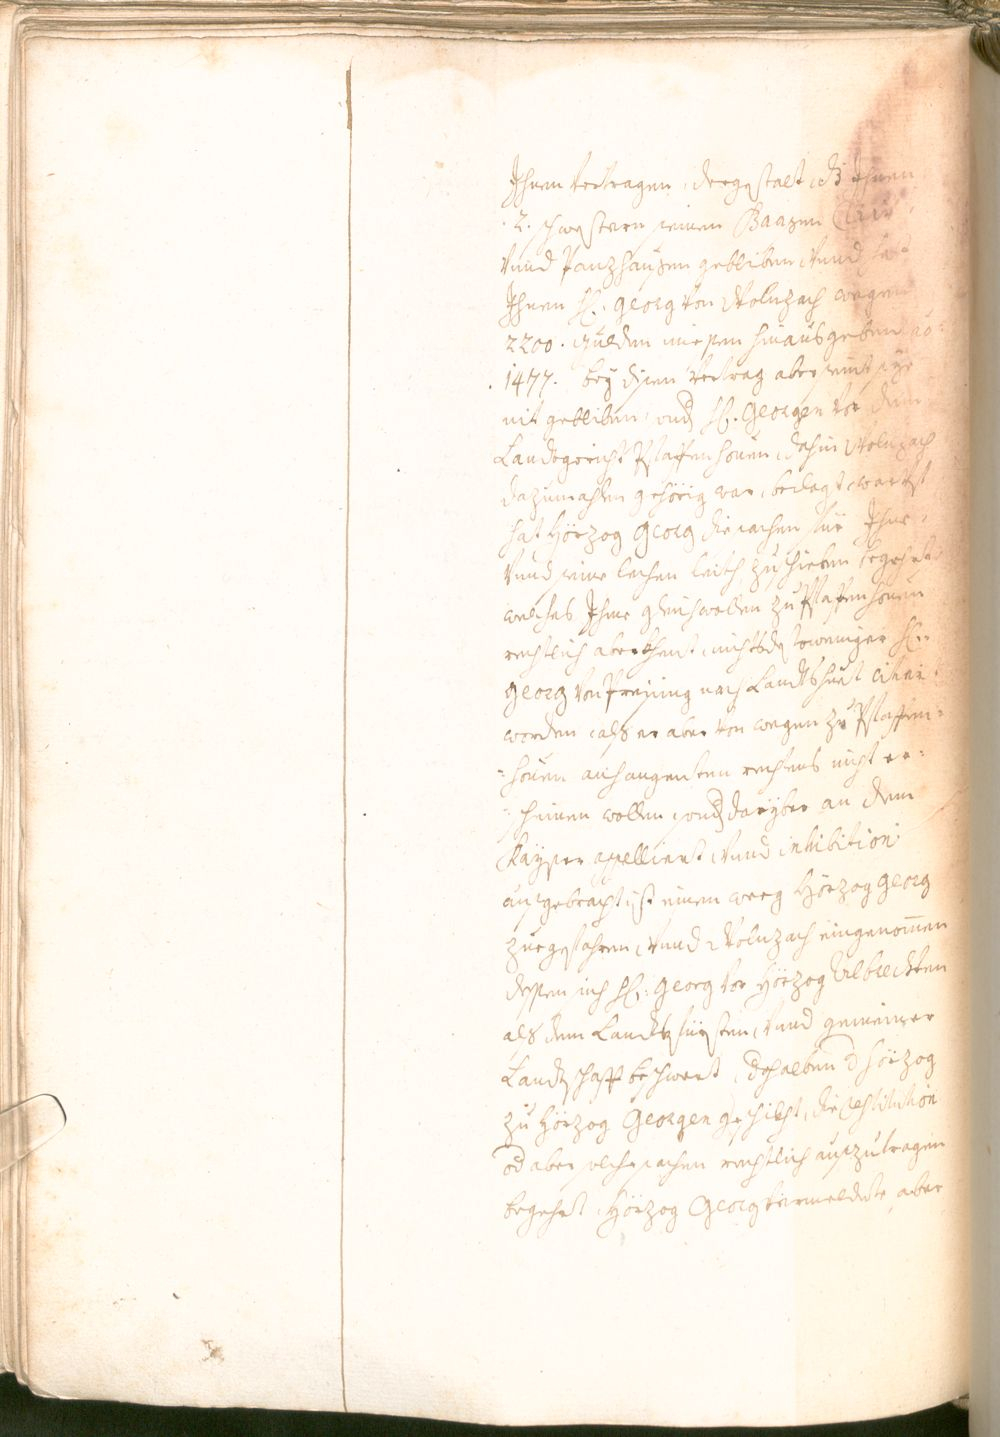 Ihnen vertragen, dergestalt, dz Ihnen
.2. schwestern seinen Baasen
vnnd Panzhausen gebliben, vnnd
Ihnen H. Georg von Wolnzach wegen
2200. gulden müessen hinausgeben ao:
1477. bey disem vertrag aber seint sye
nit gebliben, vnd H. Georgen vor dem
Landtgericht Pfaffenhouen, dahin Wolnzach
dazumahlen gehörig war, beclagt, warfst
hat Hörzog Georg die sachen für Ihne
vnnd seine lechen leith, zuschieben begehrt
welches Ihme gleichwollen zu Pfaffenhouen
rechtlich aberkhent, nichtsdestoweniger H.
Georg von Preysing nach Landtshuet citiert
worden, als er aber von wegen zu Pfaffen=
=houen anhangenten rechtens nicht er=
scheinen wollen, vnd daryber an dem
Kayser appelliert, vnnd inhibition
ausgebracht, ist einen weeg Hörzog Georg
zuegefahren, vnnd Wolnzach eingenommen
dessen sich H. Georg vor Hörzog Albrechten
als dem Landtsfürsten, vnnd gemeiner
Landtschafft beschwert, dehalben d hörzog
zu Hörzog Georgen geschickht, die restitution
od aber solche sachen rechtlich auszutragen
begehrt, Hörzog Georg vermeldete aber